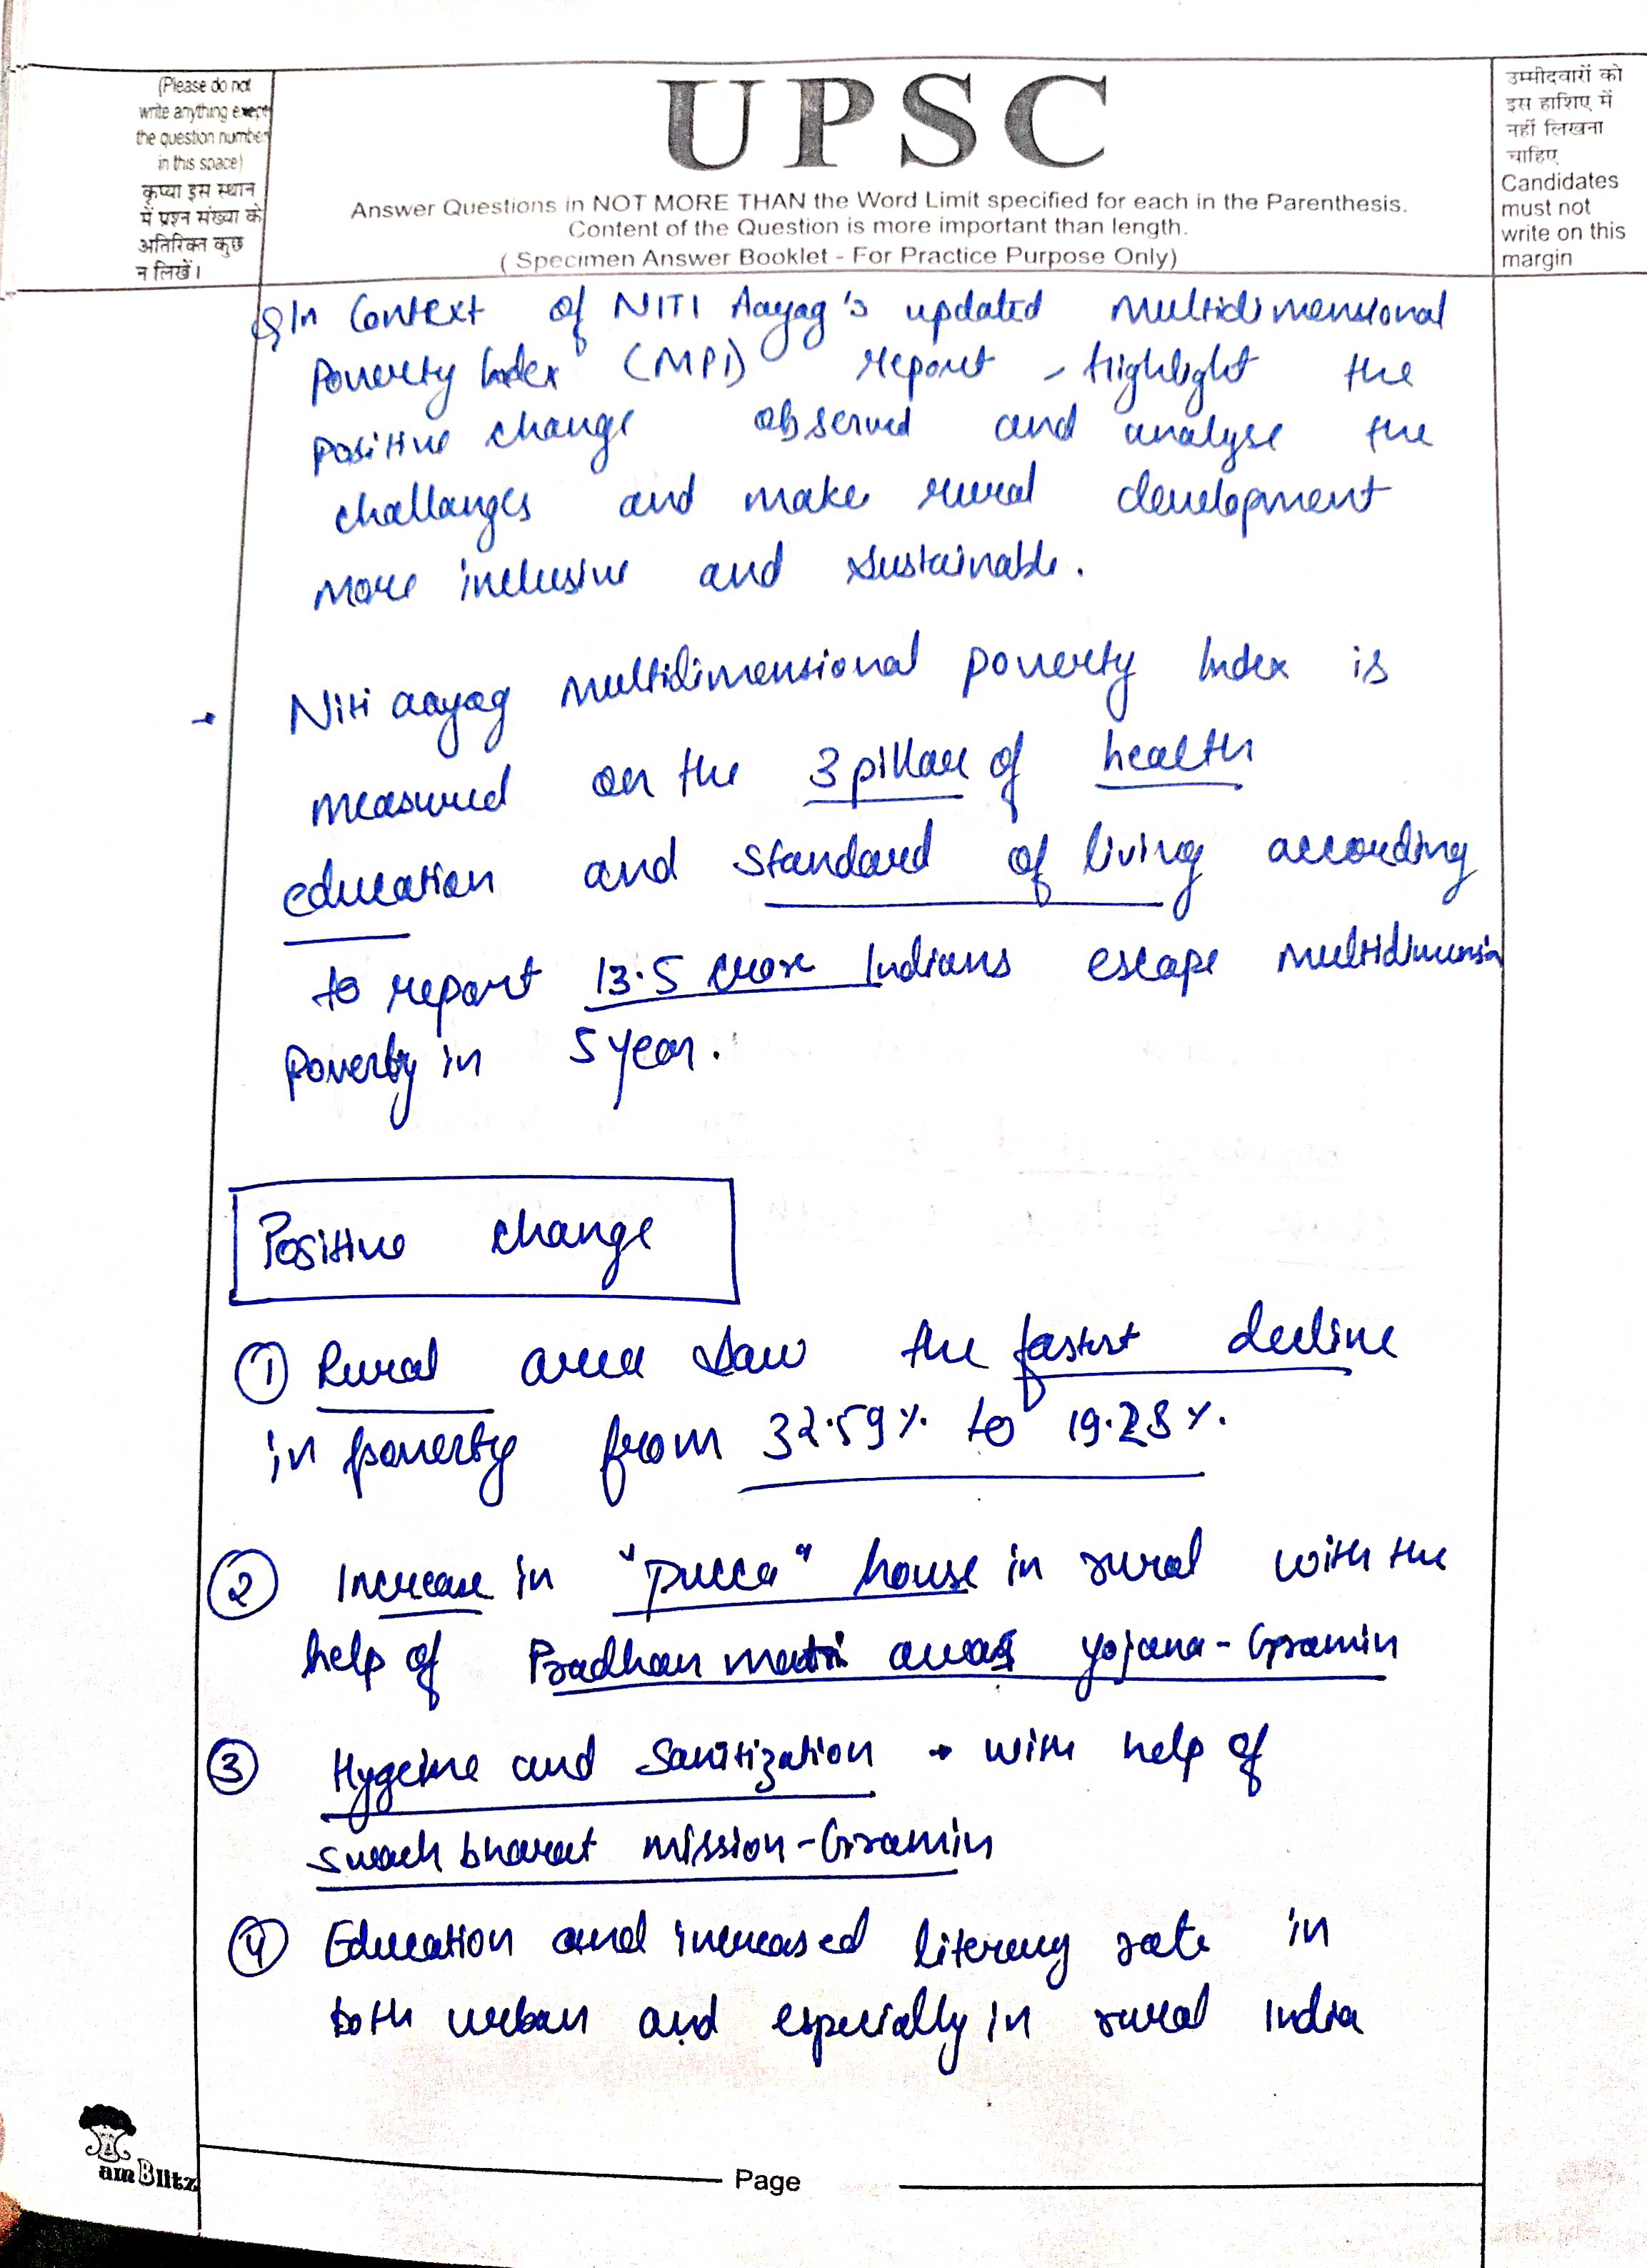 (Please do not
write anything except
the question number
in this space)
कृप्या इस स्थान
में प्रश्न संख्या के
अतिरिक्त कुछ
न लिखें।
UPSC
Answer Questions in NOT MORE THAN the Word Limit specified for each in the Parenthesis.
Content of the Question is more important than length.
( Specimen Answer Booklet - For Practice Purpose Only)
उम्मीदवारों को
इस हाशिए में
नहीं लिखना
चाहिए
Candidates
must not
write on this
margin
Q In Context of NITI Aayog's updated Multidimensional
Poverty Index (MPI) report, Highlight the
positive change observed and analyse the
challanges and make rural development
more inclusive and sustainable.
→ Niti aayog multidimensional poverty Index is
measured on the 3 pillar of health
education and standard of living according
to report 13.5 crore Indians escape multidimension
Poverty in 5 year.
Positive change
① Rural area saw the fastest decline
in poverty from 32.59% to 19.28%.
② Increase in "pucca" house in rural with the
help of Pradhan mantri awas yojana - Gramin
③ Hygeine and Sanitization → with help of
swach bharat mission - Gramin
④ Education and increased literacy rate in
both urban and especially in rural India
am Blitz
Page